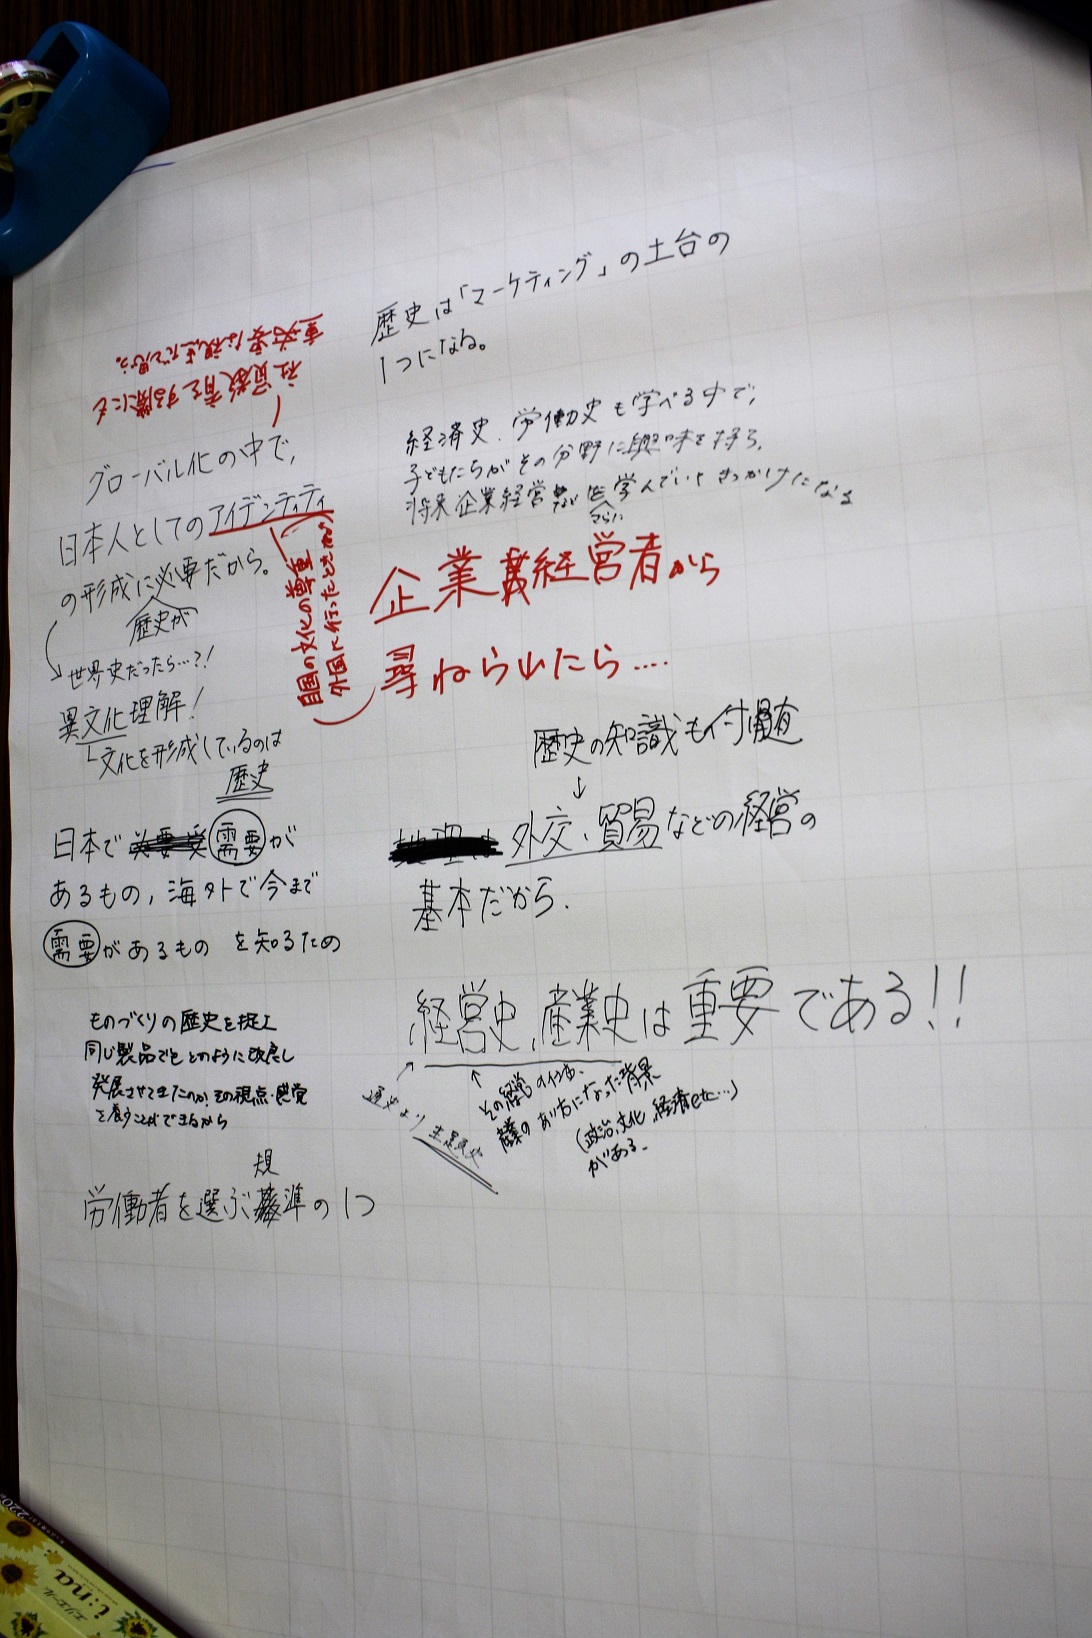 歴史は「マーケティング」の土台の
1つになる。
社員教育をする際にも
重要な視点だと思う。
経済史、労働史も学べる中で、
子どもたちがその分野に興味を持ち、
将来企業経営 を学んでいくきっかけになる
さらに
グローバル化の中で、
日本人としてのアイデンティティ
の形成に必要だから。
歴史が
自国の文化の尊重
外国に行ったときなど
世界史だったら…?!
異文化理解!
文化を形成しているのは
歴史
企業経営者から
尋ねられたら….
歴史の知識も付随
↓
外交、貿易などの経営の
基本だから.
日本で 需要が
あるもの, 海外で今まで
需要があるもの を知るため
経営史、産業史は重要である!!
通史より
その経営の
産業の あり方になった背景
(政治、文化、経済etc…)
がある.
ものづくりの歴史を捉え
同じ製品でもどのように改良し
発展させてきたのか、その視点・感覚
を養うことができるから
規
労働者を選ぶ 準の1つ
エリエール
i:na
220